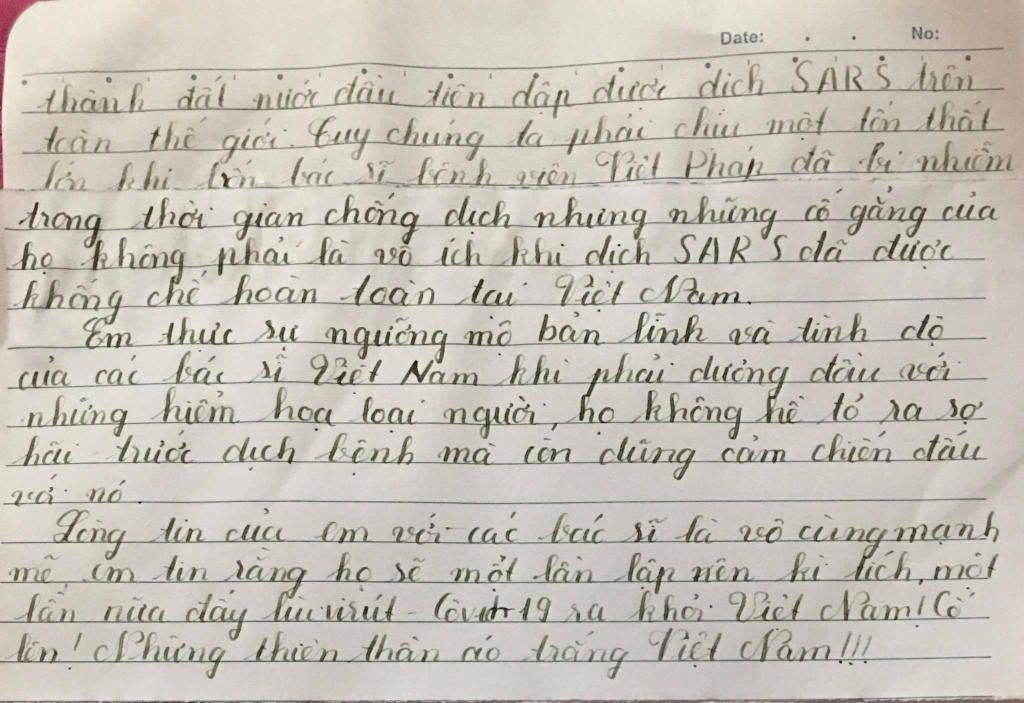 Date: . . No:
thành đất nước đầu tiên dập được dịch SARS trên
toàn thế giới. Tuy chúng ta phải chịu một tổn thất
lớn khi bác sĩ bệnh viện Việt Pháp đã bị nhiễm
trong thời gian chống dịch nhưng những cố gắng của
họ không phải là vô ích khi dịch SARS đã được
khống chế hoàn toàn tại Việt Nam.
Em thực sự ngưỡng mộ bản lĩnh và tinh độ
của các bác sĩ Việt Nam khi phải đương đầu với
những hiểm họa loài người, họ không hề tỏ ra sợ
hãi trước dịch bệnh mà còn dũng cảm chiến đấu
với nó.
Lòng tin của em với các bác sĩ là vô cùng mạnh
mẽ, em tin rằng họ sẽ một lần lập nên kì tích, một
lần nữa đẩy lùi virút - Covid-19 ra khỏi Việt Nam! Cố
lên! Những thiên thần áo trắng Việt Nam!!!